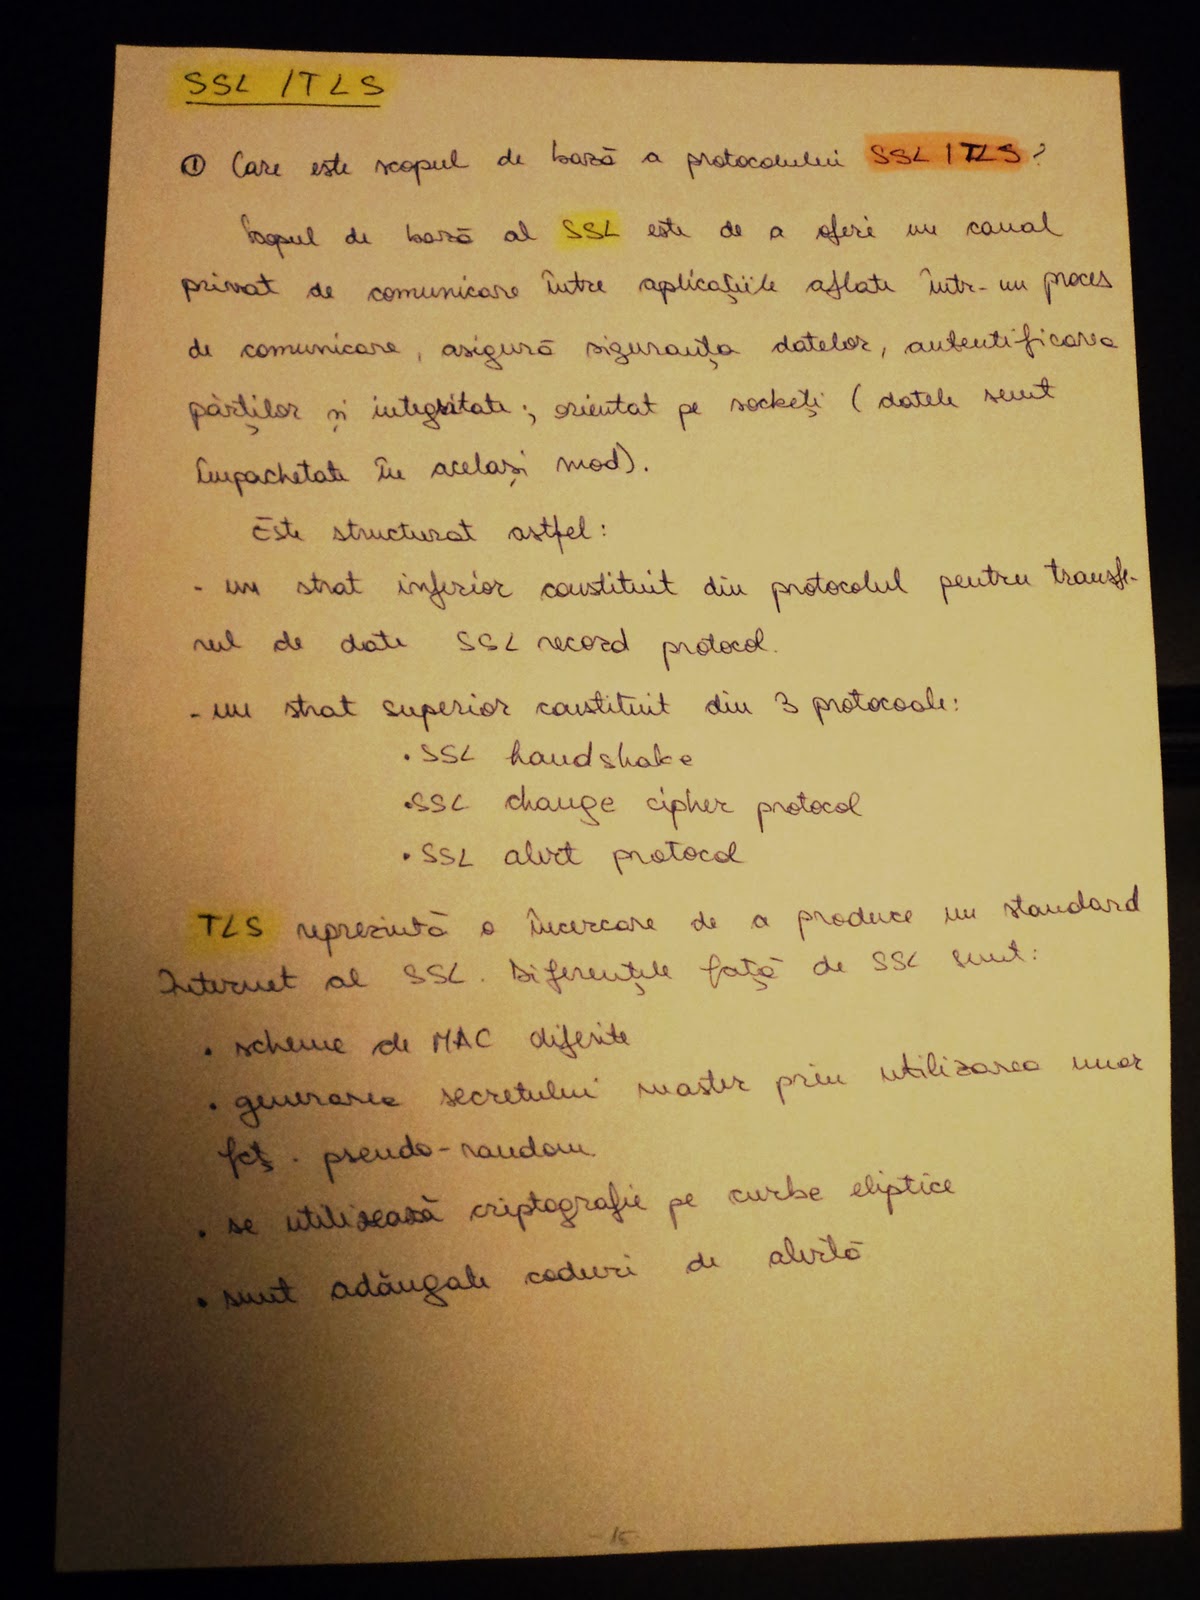 SSL / TLS
① Care este scopul de bază a protocolului SSL / TLS ?
Scopul de bază al SSL este de a oferi un canal
privat de comunicare între aplicațiile aflate într-un proces
de comunicare, asigură siguranța datelor, autentificarea
părților și integritate; orientat pe socketi (datele sunt
împachetate în același mod).
Este structurat astfel:
- un strat inferior constituit din protocolul pentru transfe-
rul de date SSL record protocol.
- un strat superior constituit din 3 protocoale:
• SSL handshake
• SSL change cipher protocol
• SSL alert protocol
TLS reprezintă o încercare de a produce un standard
Internet al SSL. Diferențele față de SSL sunt:
• scheme de MAC diferite
• generarea secretului master prin utilizarea unor
fcț. pseudo-random.
• se utilizează criptografie pe curbe eliptice
• sunt adăugate coduri de alertă
- 15 -